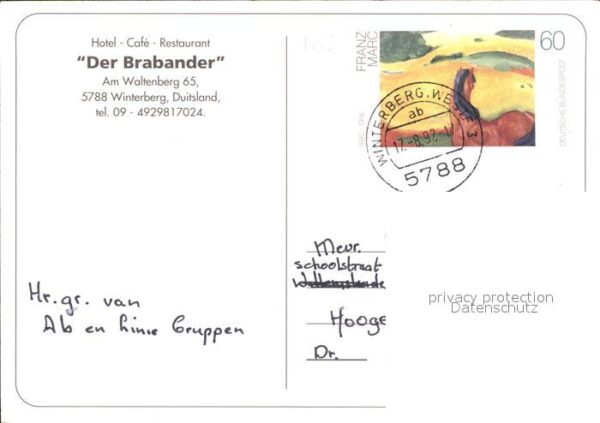 Hotel - Café - Restaurant
"Der Brabander"
Am Waltenberg 65,
5788 Winterberg, Duitsland,
tel. 09 - 4929817024.
FRANZ MARC
60
DEUTSCHE BUNDESPOST
WINTERBERG, WESTF 3
ab
17.-8.92.-17
5788
Mevr.
schoolstraat
Hooge
Dr.
Hr. gr. van
Ab en
privacy protection
Datenschutz